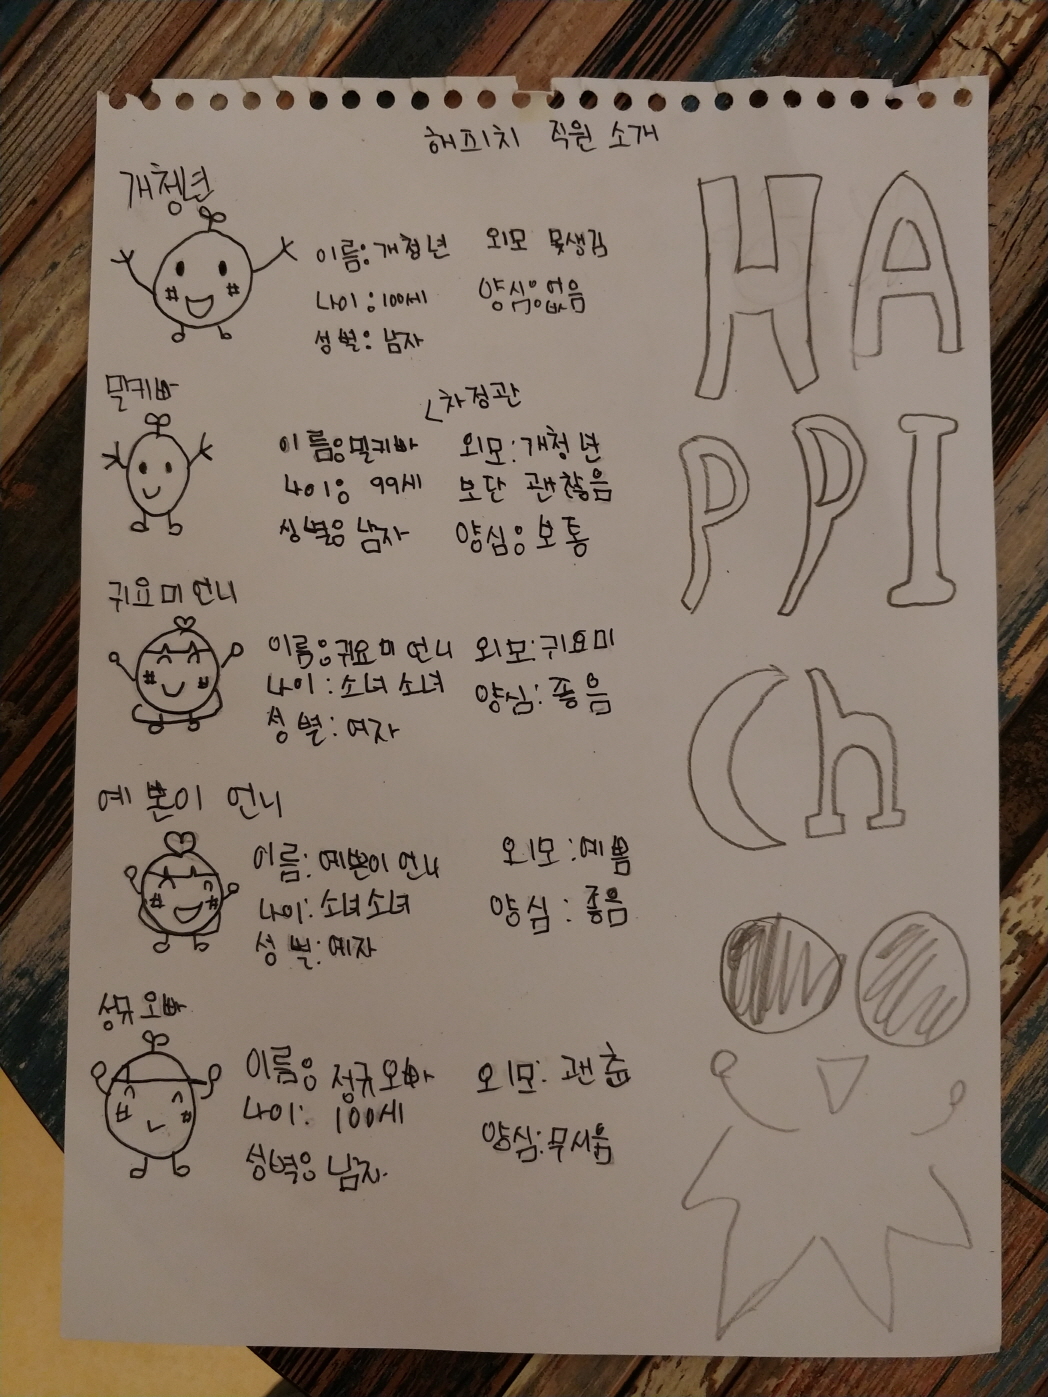 해피치 직원 소개
개청년
이름: 개청년 외모 못생김
나이: 100세 양심: 없음
성별: 남자
밀키빠
<차정관
이름: 밀키빠 외모: 개청년
나이: 99세 보단 괜찮음
성별: 남자 양심: 보통
귀요미 언니
이름: 귀요미 언니 외모: 귀요미
나이: 소녀 소녀 양심: 좋음
성별: 여자
예쁜이 언니
이름: 예쁜이 언니 외모: 예쁨
나이: 소녀소녀 양심: 좋음
성별: 예자
오빠
이름: 정규오빠 외모: 괜춘
나이: 100세
성벽: 남자 양심: 무서움
HA
PPI
Ch